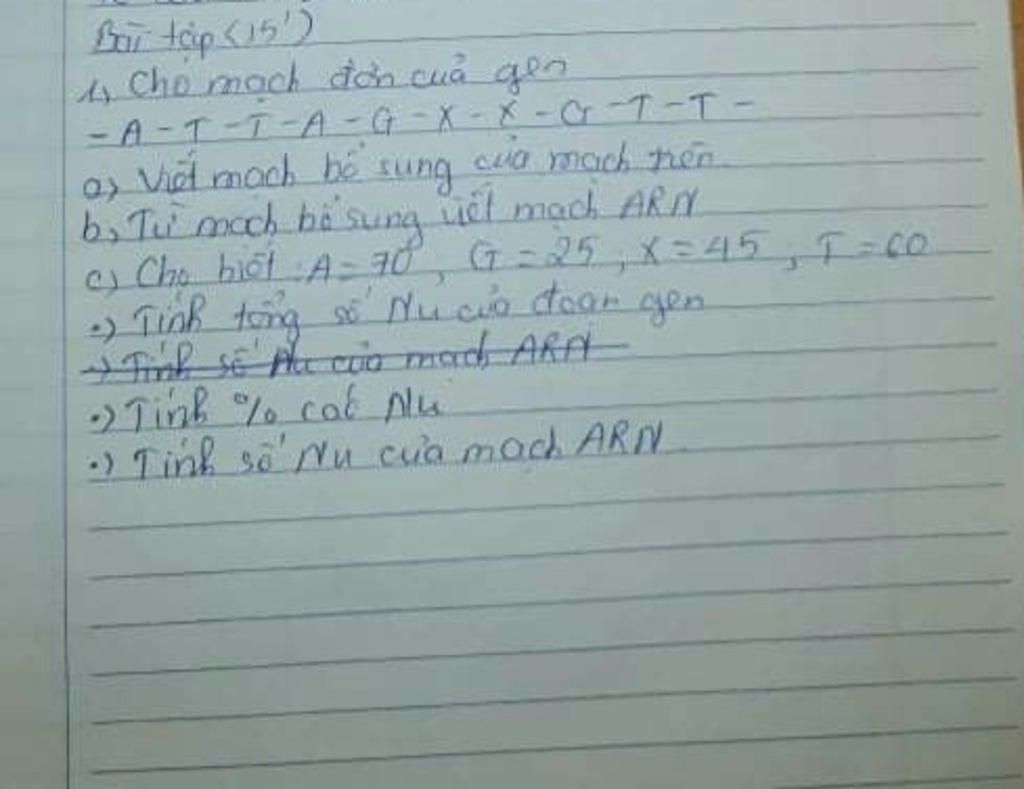 Bài tập (15')
1, Cho mạch đơn của gen
- A - T - T - A - G - X - X - G - T - T -
a, Viết mạch bổ sung của mạch trên.
b, Từ mạch bổ sung viết mạch ARN
c, Cho biết: A = 70, G = 25, X = 45, T = 60
•) Tính tổng số Nu của đoạn gen
•) Tính số Nu của mạch ARN
•) Tính % các Nu
•) Tính số Nu của mạch ARN